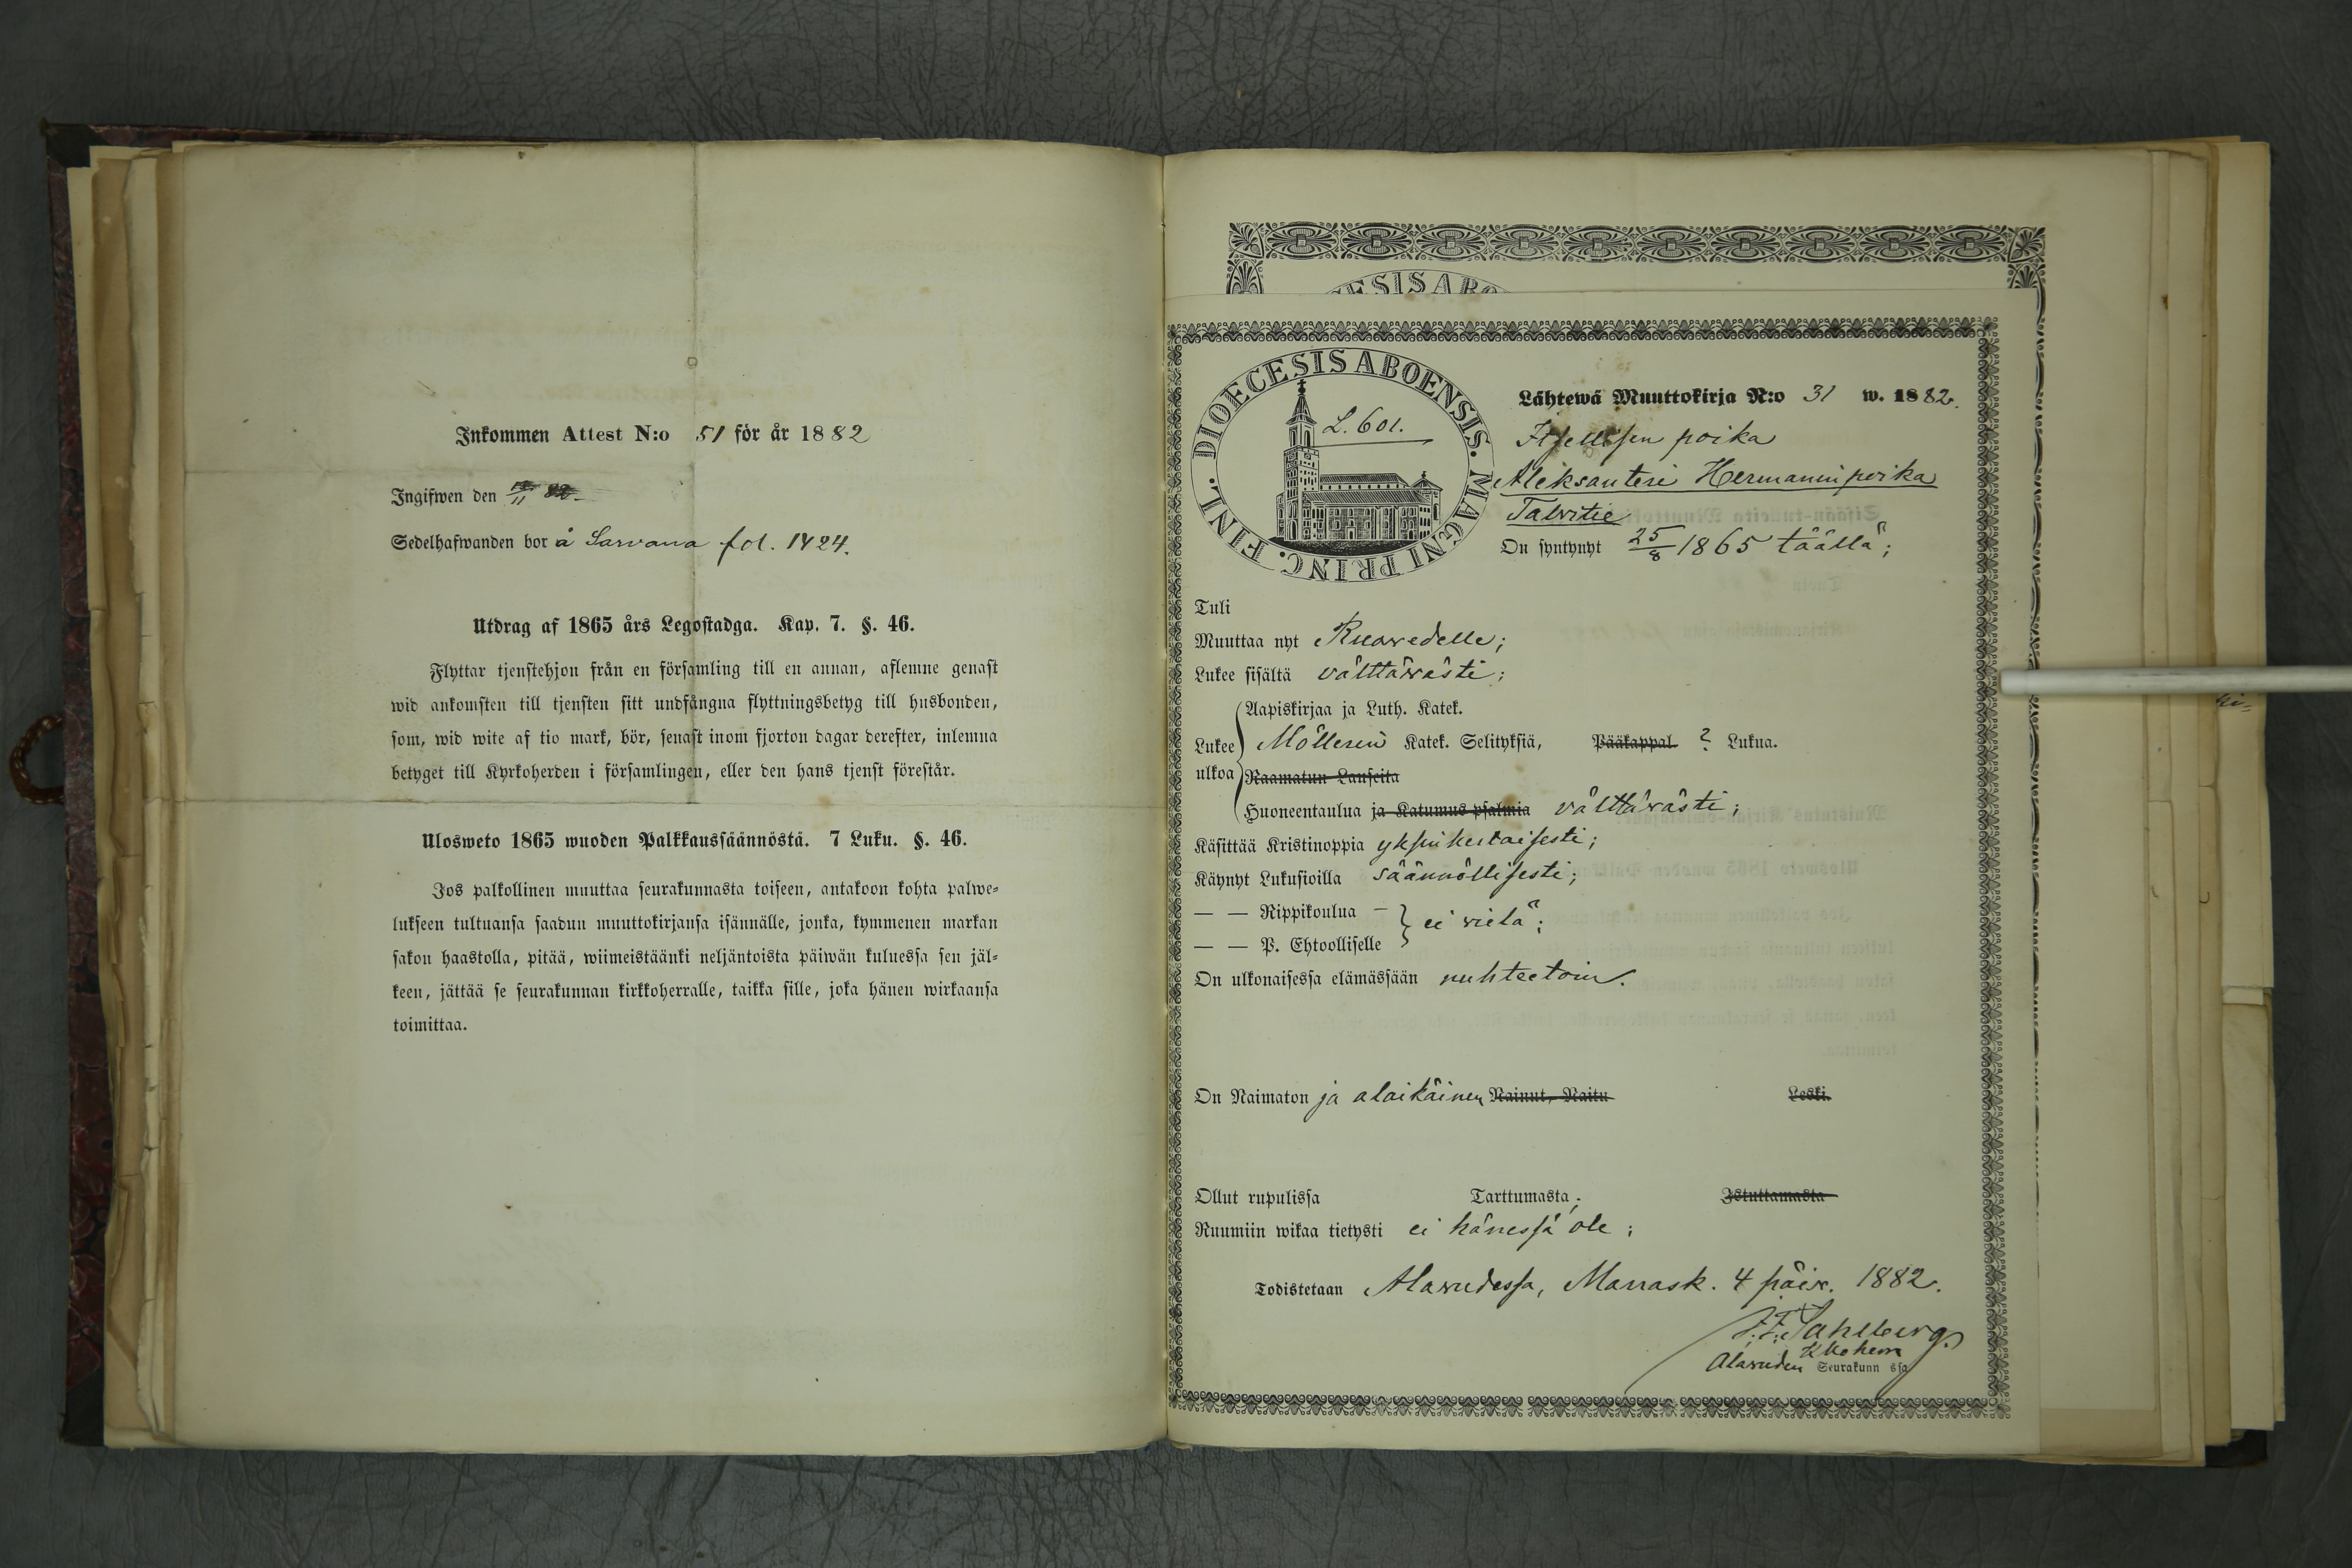 Inkommen Attest N:o 51 för år 1882
Ingifwen den 82
Sedelhafwanden bor å Sarvana fol. 1424.
Utdrag af 1865 års Legostadga. Kap. 7. §. 46.
Flyttar tjenstehjon från en församling till en annan, aflemne genast
wid ankomsten till tjensten sitt undfångna flyttningsbetyg till husbonden,
som, wid wite af tio mark, bör, senast inom fjorton dagar derefter, inlemna
betyget till Kyrkoherden i församlingen, eller den hans tjenst förestår.
Ulosweto 1865 wuoden Palkkaussäännöstä. 7 Luku. §. 46.
Jos palkollinen muuttaa seurakunnasta toiseen, antakoon kohta palwe-
lukseen tultuansa saadun muuttokirjansa isännälle, jonka, kymmenen markan
sakon haastolla, pitää, wiimeistäänki neljäntoista päiwän kuluessa sen jäl-
keen, jättää se seurakunnan kirkkoherralle, taikka sille, joka hänen wirkaansa
toimittaa.
DIOECESIS ABOENSIS. MAGNI PRINC. FINL.
L. 601.
Lähtewä Muuttokirja N:o 31 w. 1882.
Itsellisen poika
Aleksanteri Hermanninpoika
Talvitie
On syntynyt 25/8 1865 täällä;
Tuli
Muuttaa nyt Ruovedelle;
Lukee sisältä välttävästi;
Aapiskirjaa ja Luth. Katek.
Lukee Möllerin Katek. Selityksiä, Pääkappal. 2 Lukua.
ulkoa Raamatun Lauseita
Huoneentaulua ja Katumus psalmia välttävästi;
Käsittää Kristinoppia yksinkertaisesti;
Käynyt Lukusioilla säännöllisesti;
— — Rippikoulua — ei vielä;
— — P. Ehtoolliselle
On ulkonaisessa elämässään nuhteetoin.
On Naimaton ja alaikäinen Nainut, Naitu Leski.
Ollut rupulissa Tarttumasta; Istuttamasta
Ruumiin wikaa tietysti ei hänessä ole;
Todistetaan Alavudessa, Marrask. 4 päiv. 1882.
F. F. Sahlberg
Kkoherra
Alavuden Seurakunnassa